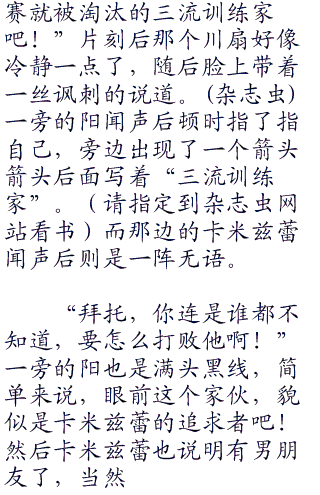 赛就被淘汰的三流训练家
吧！”片刻后那个川扇好像
冷静一点了，随后脸上带着
一丝讽刺的说道。(杂志虫)
一旁的阳闻声后顿时指了指
自己，旁边出现了一个箭头
箭头后面写着“三流训练
家”。（请指定到杂志虫网
站看书）而那边的卡米兹蕾
闻声后则是一阵无语。
“拜托，你连是谁都不
知道，要怎么打败他啊！”
一旁的阳也是满头黑线，简
单来说，眼前这个家伙，貌
似是卡米兹蕾的追求者吧！
然后卡米兹蕾也说明有男朋
友了，当然